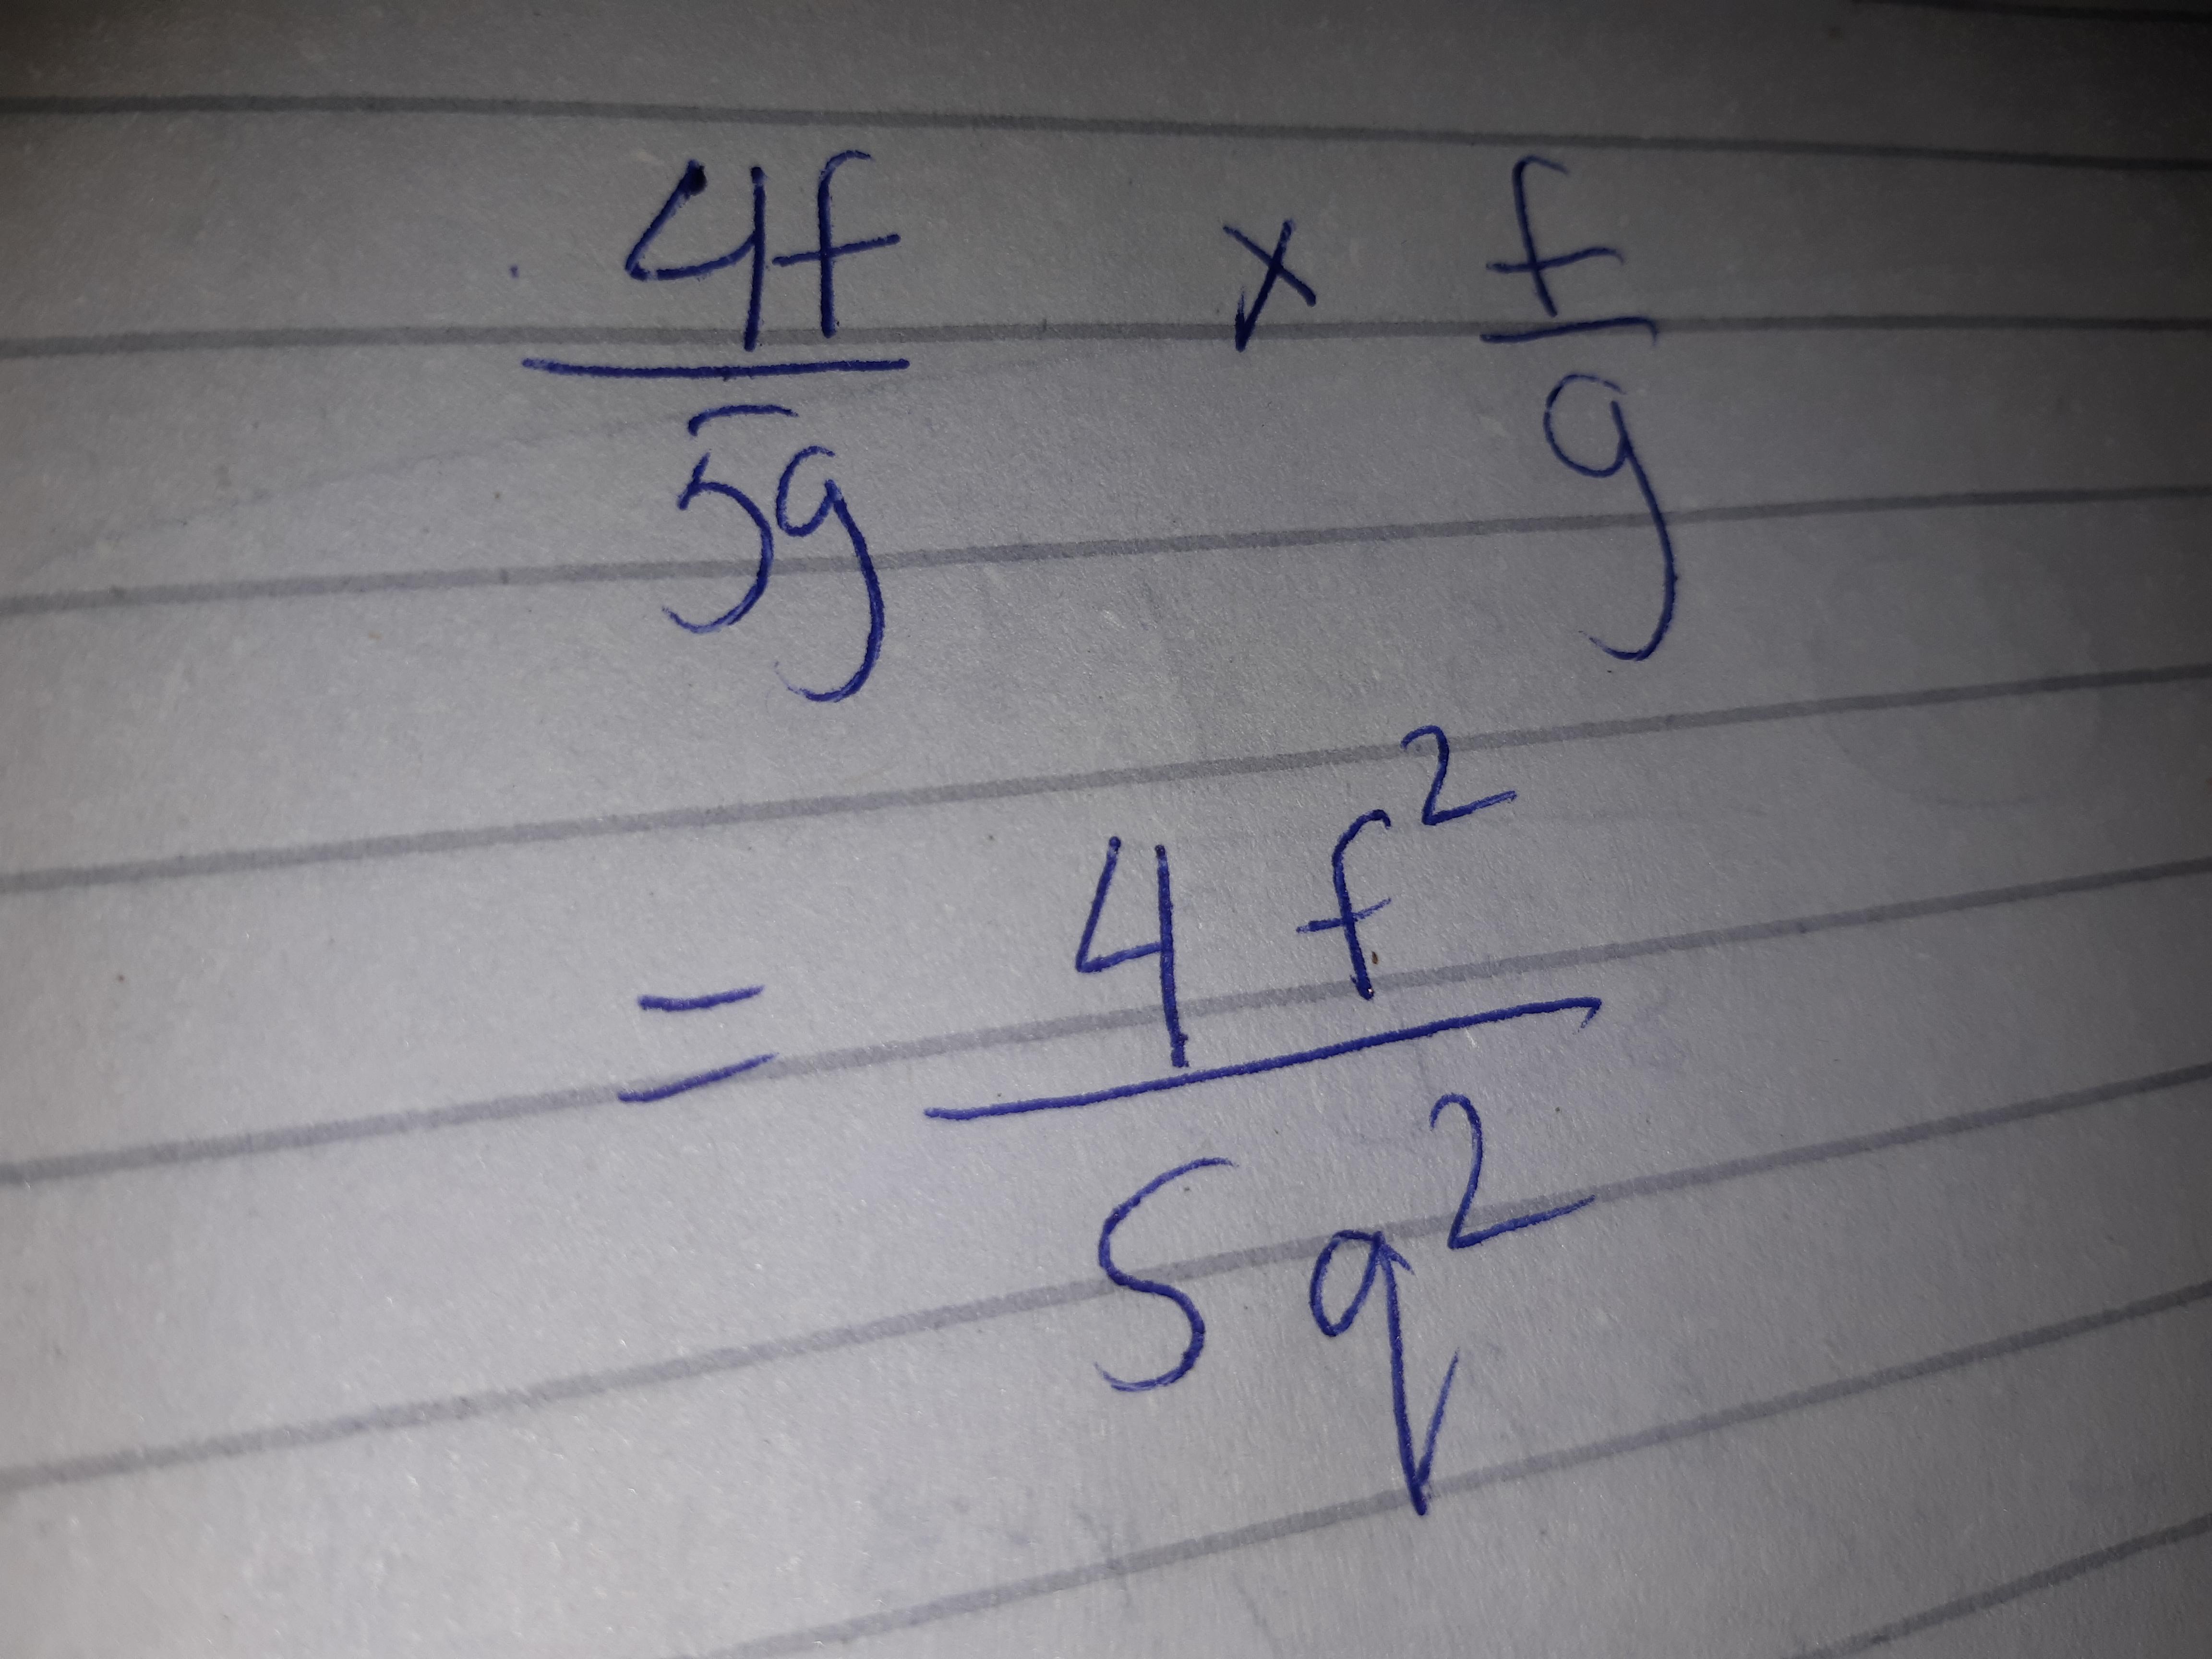 4f/5g × f/g
= 4f²/5q²